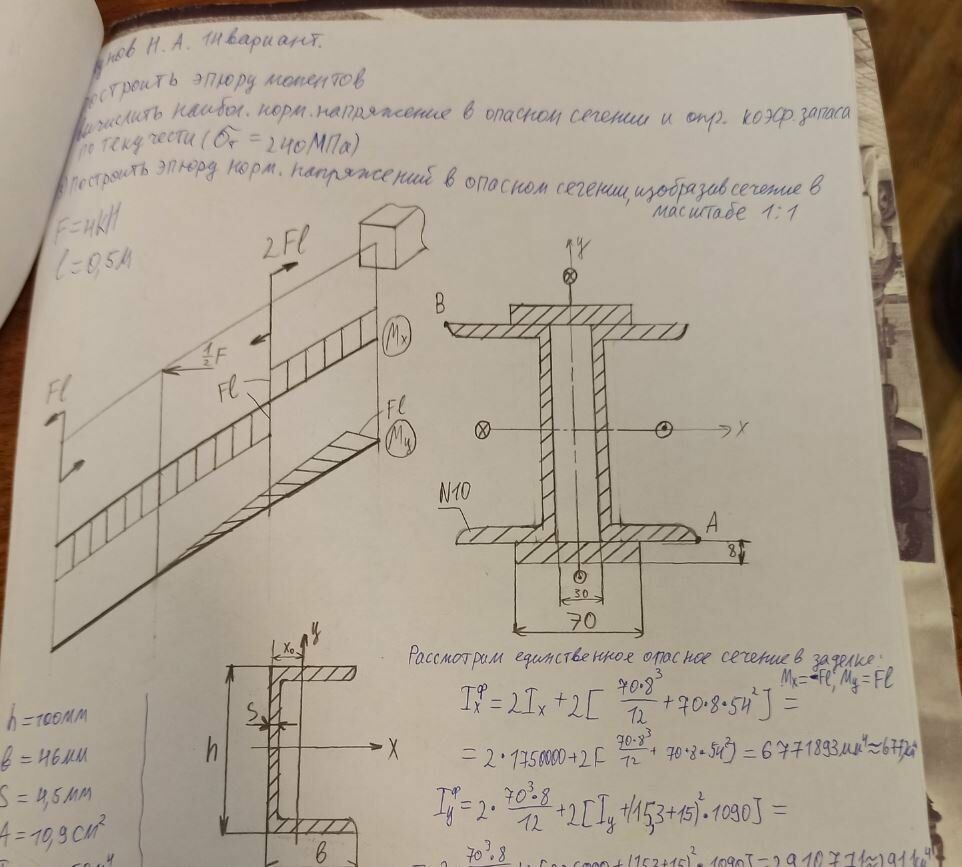 Н. А. 14 вариант.
построить эпюру моментов
вычислить наибол. норм. напряжение в опасном сечении и опр. коэф. запаса
по текучести (σт = 240 МПа)
построить эпюру норм. напряжений в опасном сечении, изобразив сечение в
масштабе 1:1
F = 4кН
l = 0,5м
2Fl
y
B
Mx
½F
Fl
Fl
Fl
My
x
N10
A
8
30
70
x₀
y
S
h
x
в
h = 100мм
в = 46мм
S = 4,5мм
A = 10,9см²
Рассмотрим единственное опасное сечение в заделке:
Mx = -Fl, My = Fl
Ixᶲ = 2Ix + 2[70·8³/12 + 70·8·54²] =
= 2·1750000 + 2[70·8³/12 + 70·8·54²] = 6771893мм⁴ ≈
Iyᶲ = 2·70³·8/12 + 2[Iy + (15,3+15)²·1090] =
70³·8
(15,3+15)²·1090] = 2910771 ≈ 291